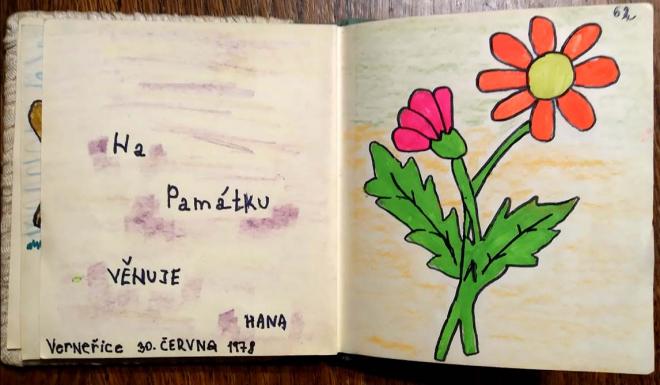 Na
Památku
VĚNUJE
HANA
Verneřice 30. ČERVNA 1978
62